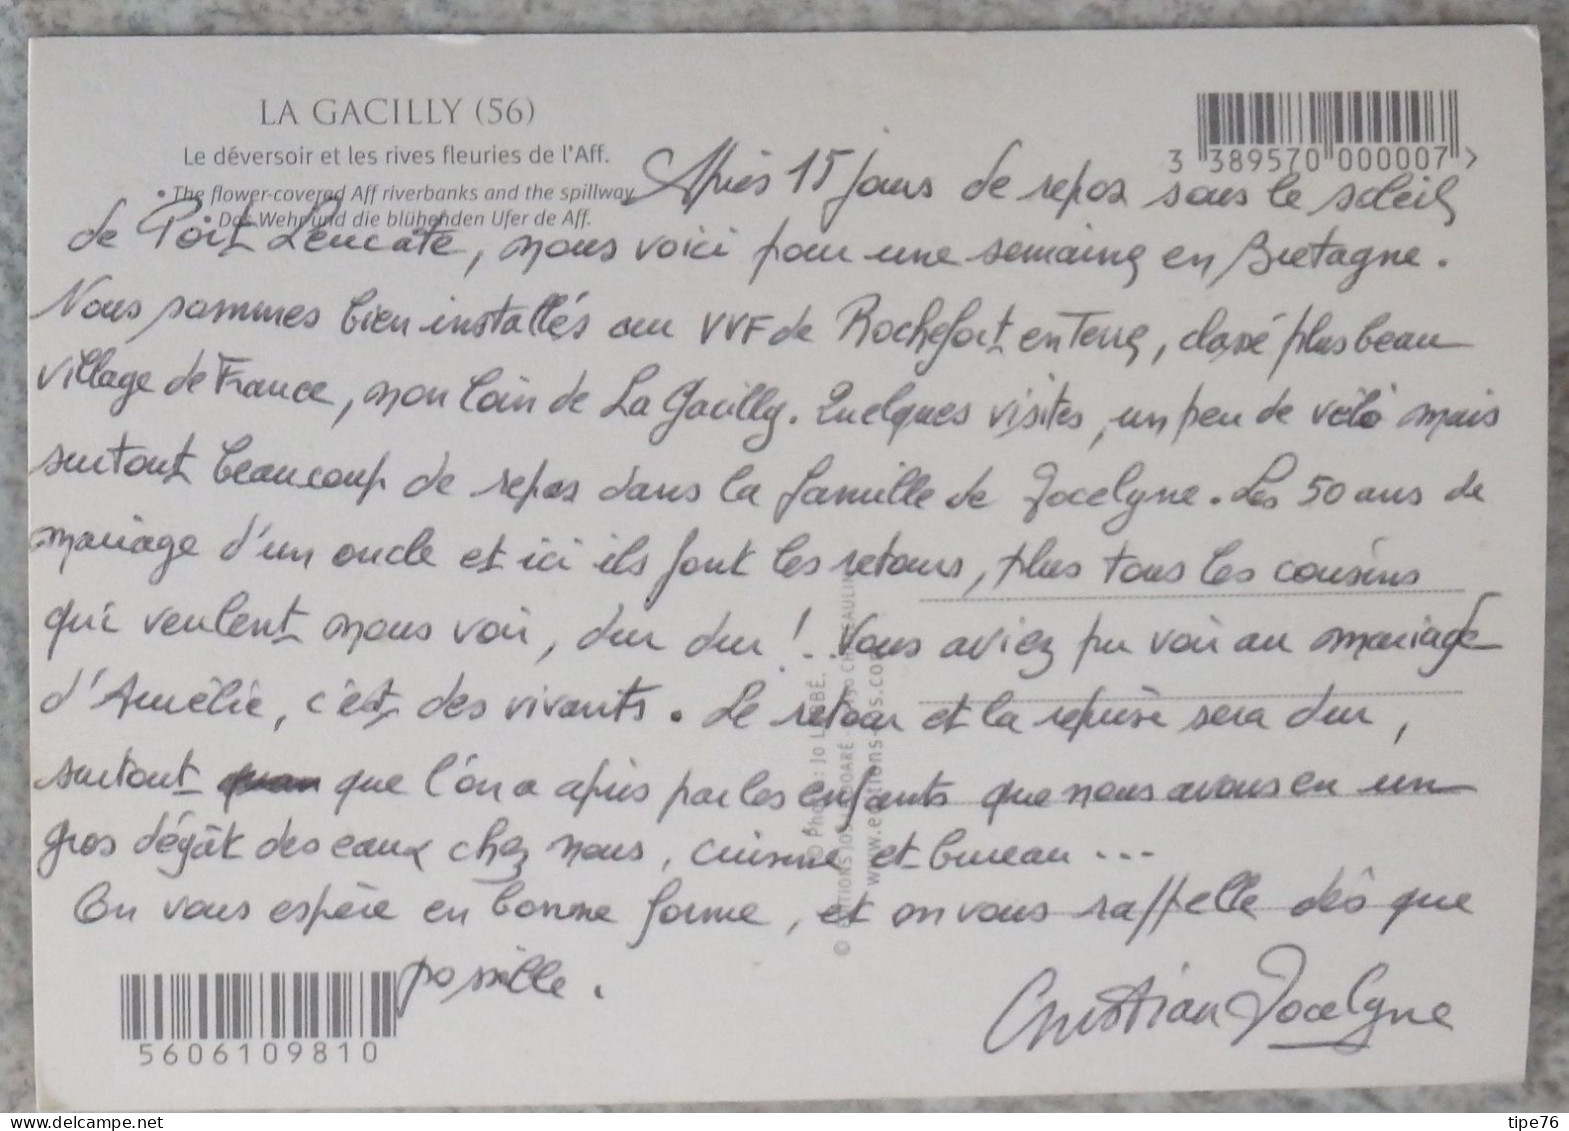 LA GACILLY (56)
Le déversoir et les rives fleuries de l'Aff.
• The flower-covered Aff riverbanks and the spillway.
• Das Wehr und die blühenden Ufer de Aff.
3 389570 000007 >
Après 15 jours de repos sous le soleil
de Port Leucate, nous voici pour une semaine en Bretagne.
Nous sommes bien installés au VVF de Rochefort en Terre, classé plus beau
village de France, non loin de La Gacilly. Quelques visites, un peu de vélo mais
surtout beaucoup de repas dans la famille de Jocelyne. Les 50 ans de
mariage d'un oncle et ici ils font les retours, plus tous les cousins
qui veulent nous voir, dur dur ! Vous aviez pu voir au mariage
d'Amélie, c'est des vivants. Le retour et la reprise sera dur,
surtout que l'on a appris par les enfants que nous avons eu un
gros dégât des eaux chez nous, cuisine et bureau ...
On vous espère en bonne forme, et on vous rappelle dès que
possible.
Christian Jocelyne
5606109810
© Photo : Jo
© EDITIONS JOS
www.editions-
delcampe.net
tipe76